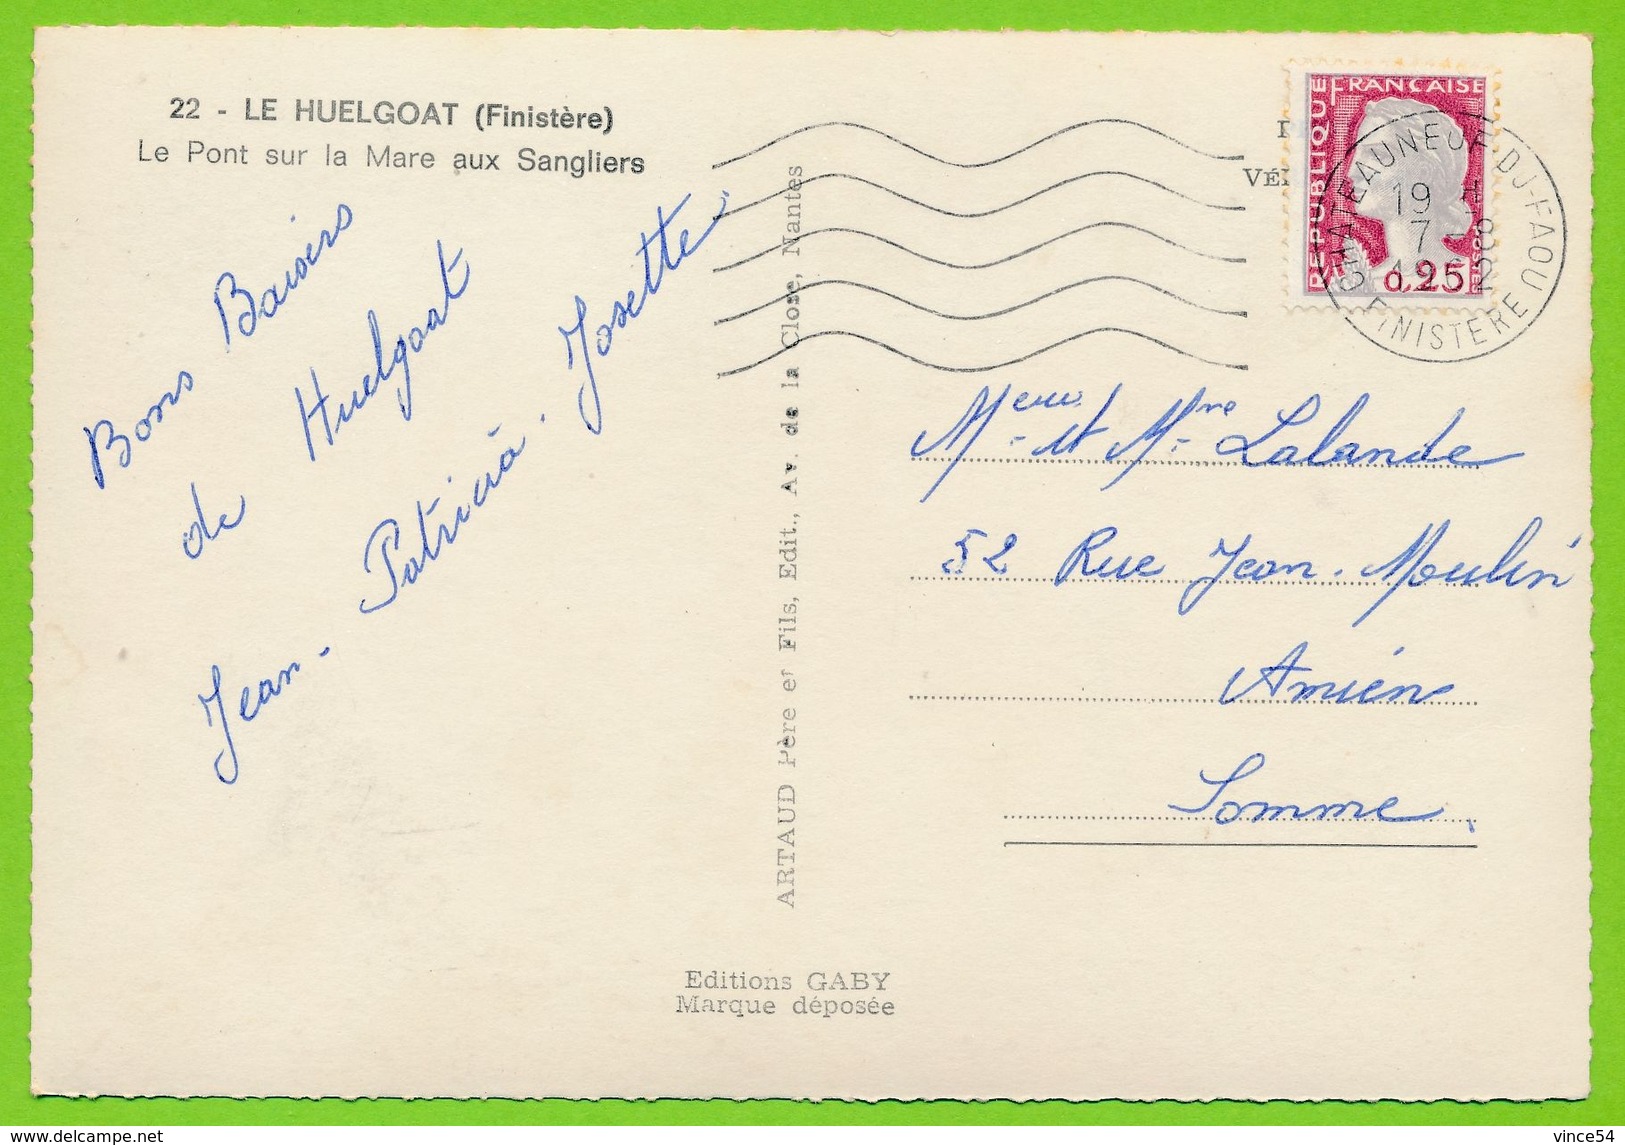 22 - LE HUELGOAT (Finistère)
Le Pont sur la Mare aux Sangliers
Bons Baisers
de Huelgoat
Jean - Patricia. Josette
ARTAUD Père et Fils, Edit., Av. de la Close, Nantes
Editions GABY
Marque déposée
RÉPUBLIQUE FRANÇAISE
POSTES
0,25
CHATEAUNEUF-DU-FAOU
19 H
7 - 8
1962
FINISTERE
Meur et Mme Lalande
52 Rue Jean. Moulin
Amiens
Somme.
delcampe.net
vince54